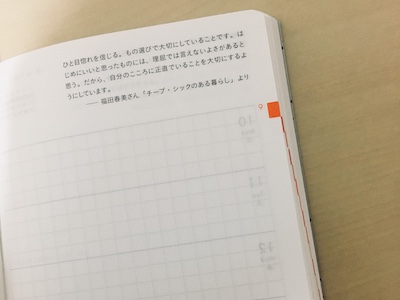 ひと目惚れを信じる。もの選びで大切にしていることです。は
じめにいいと思ったものには、理屈では言えないよさがあると
思う。だから、自分のこころに正直でいることを大切にするよ
うにしています。
—— 福田春美さん「チープ・シックのある暮らし」より
9